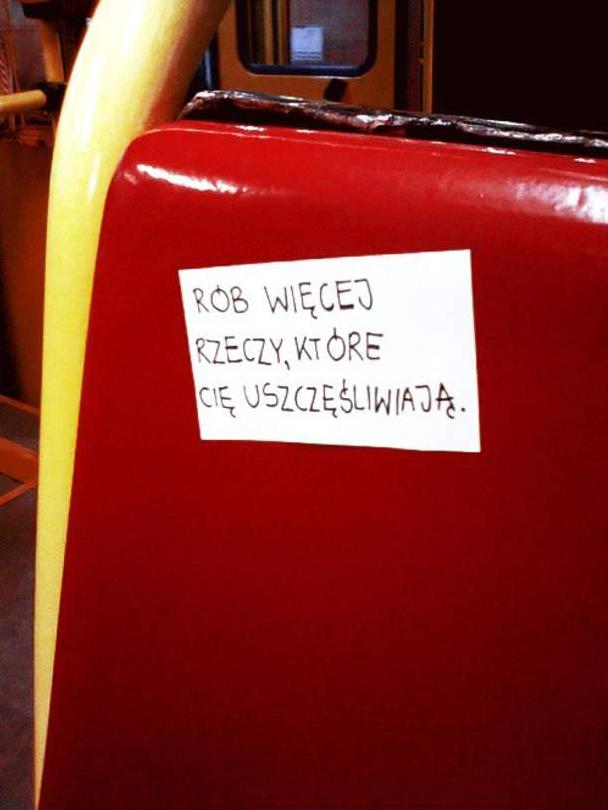 RÓB WIĘCEJ
RZECZY, KTÓRE
CIĘ USZCZĘŚLIWIAJĄ.